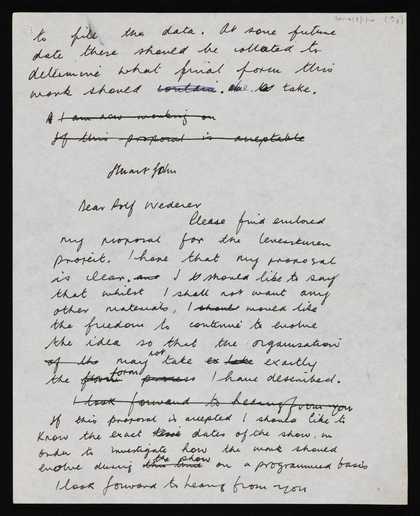 to file the data. At some future
date these should be collected to
determine what final form this
work should contain. be to take.
A I am now working on
If this proposal is acceptable
Stuart John
Dear Rolf Wederer
Please find enclosed
my proposal for the Leverkusen
project. I hope that my proposal
is clear. and I should like to say
that whilst I shall not want any
other materials, I should would like
the freedom to continue to evolve
the idea so that the organisation
of the may not take exactly
the form process I have described.
I look forward to hearing from you
If this proposal is accepted I should like to
know the exact dates of the show, in
order to investigate how the work should
evolve during this time the show on a programmed basis
I look forward to hearing from you